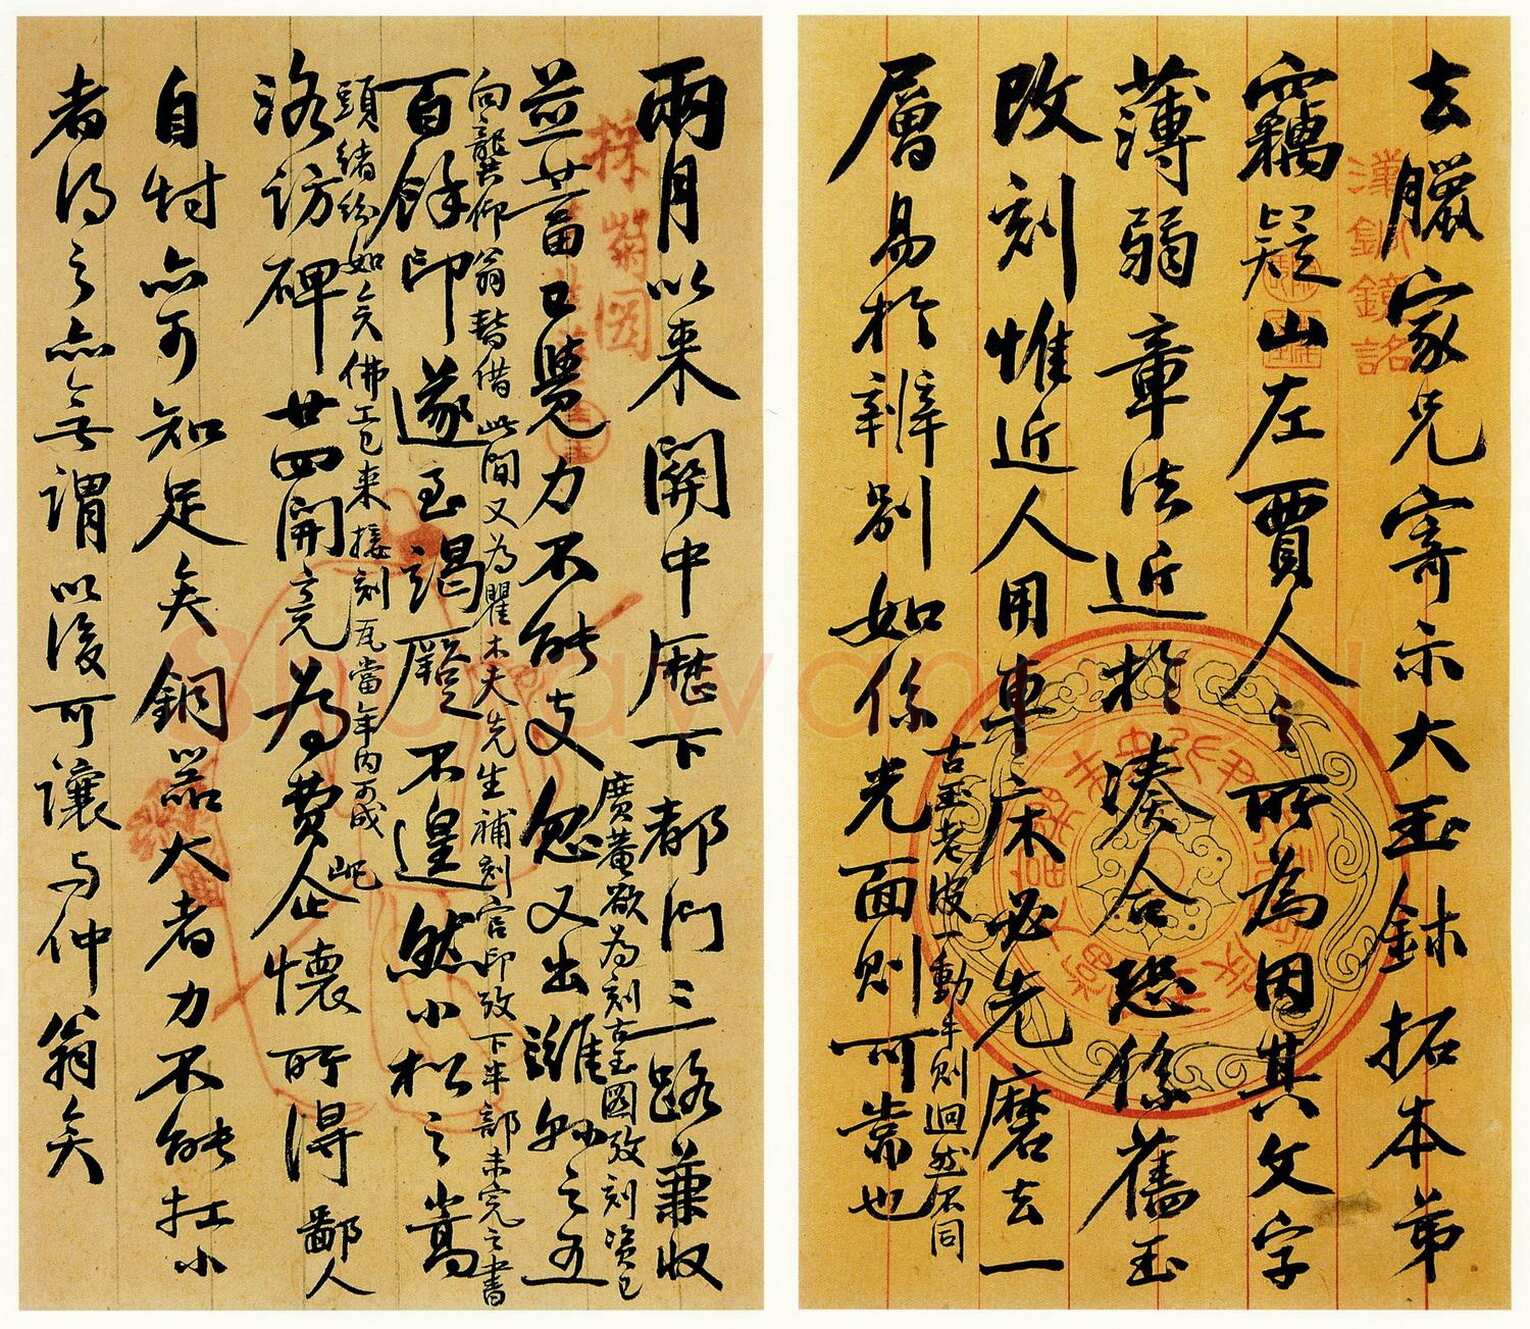 去臘家兄寄示大玉鉢拓本弟
竊疑山左賈人之所為因其文字
薄弱章法近於湊合恐係舊玉
改刻惟近人用車床必先磨去一
層易於辨別如係光面則可靠也
古玉老皮一動手則迴然不同
漢銅鏡銘
兩月以來關中歷下都門三路兼收
並蓄已覺力不能支忽又出濰縣之五
廣菴欲為刻古玉圖攷刻資已
百餘印遂至竭蹷不遑然小松之嵩
向龔仰翁暫借此間又為瞿木夫先生補刻官印攷下半部未完之書
洛訪碑廿四開竟為費屺懷所得鄙人
頭緒紛如矣佛工已來接刻瓦當年內可成
自忖亦可知足矣銅器大者力不能扛小
者得之亦無謂以後可讓與仲翁矣
採菊圖